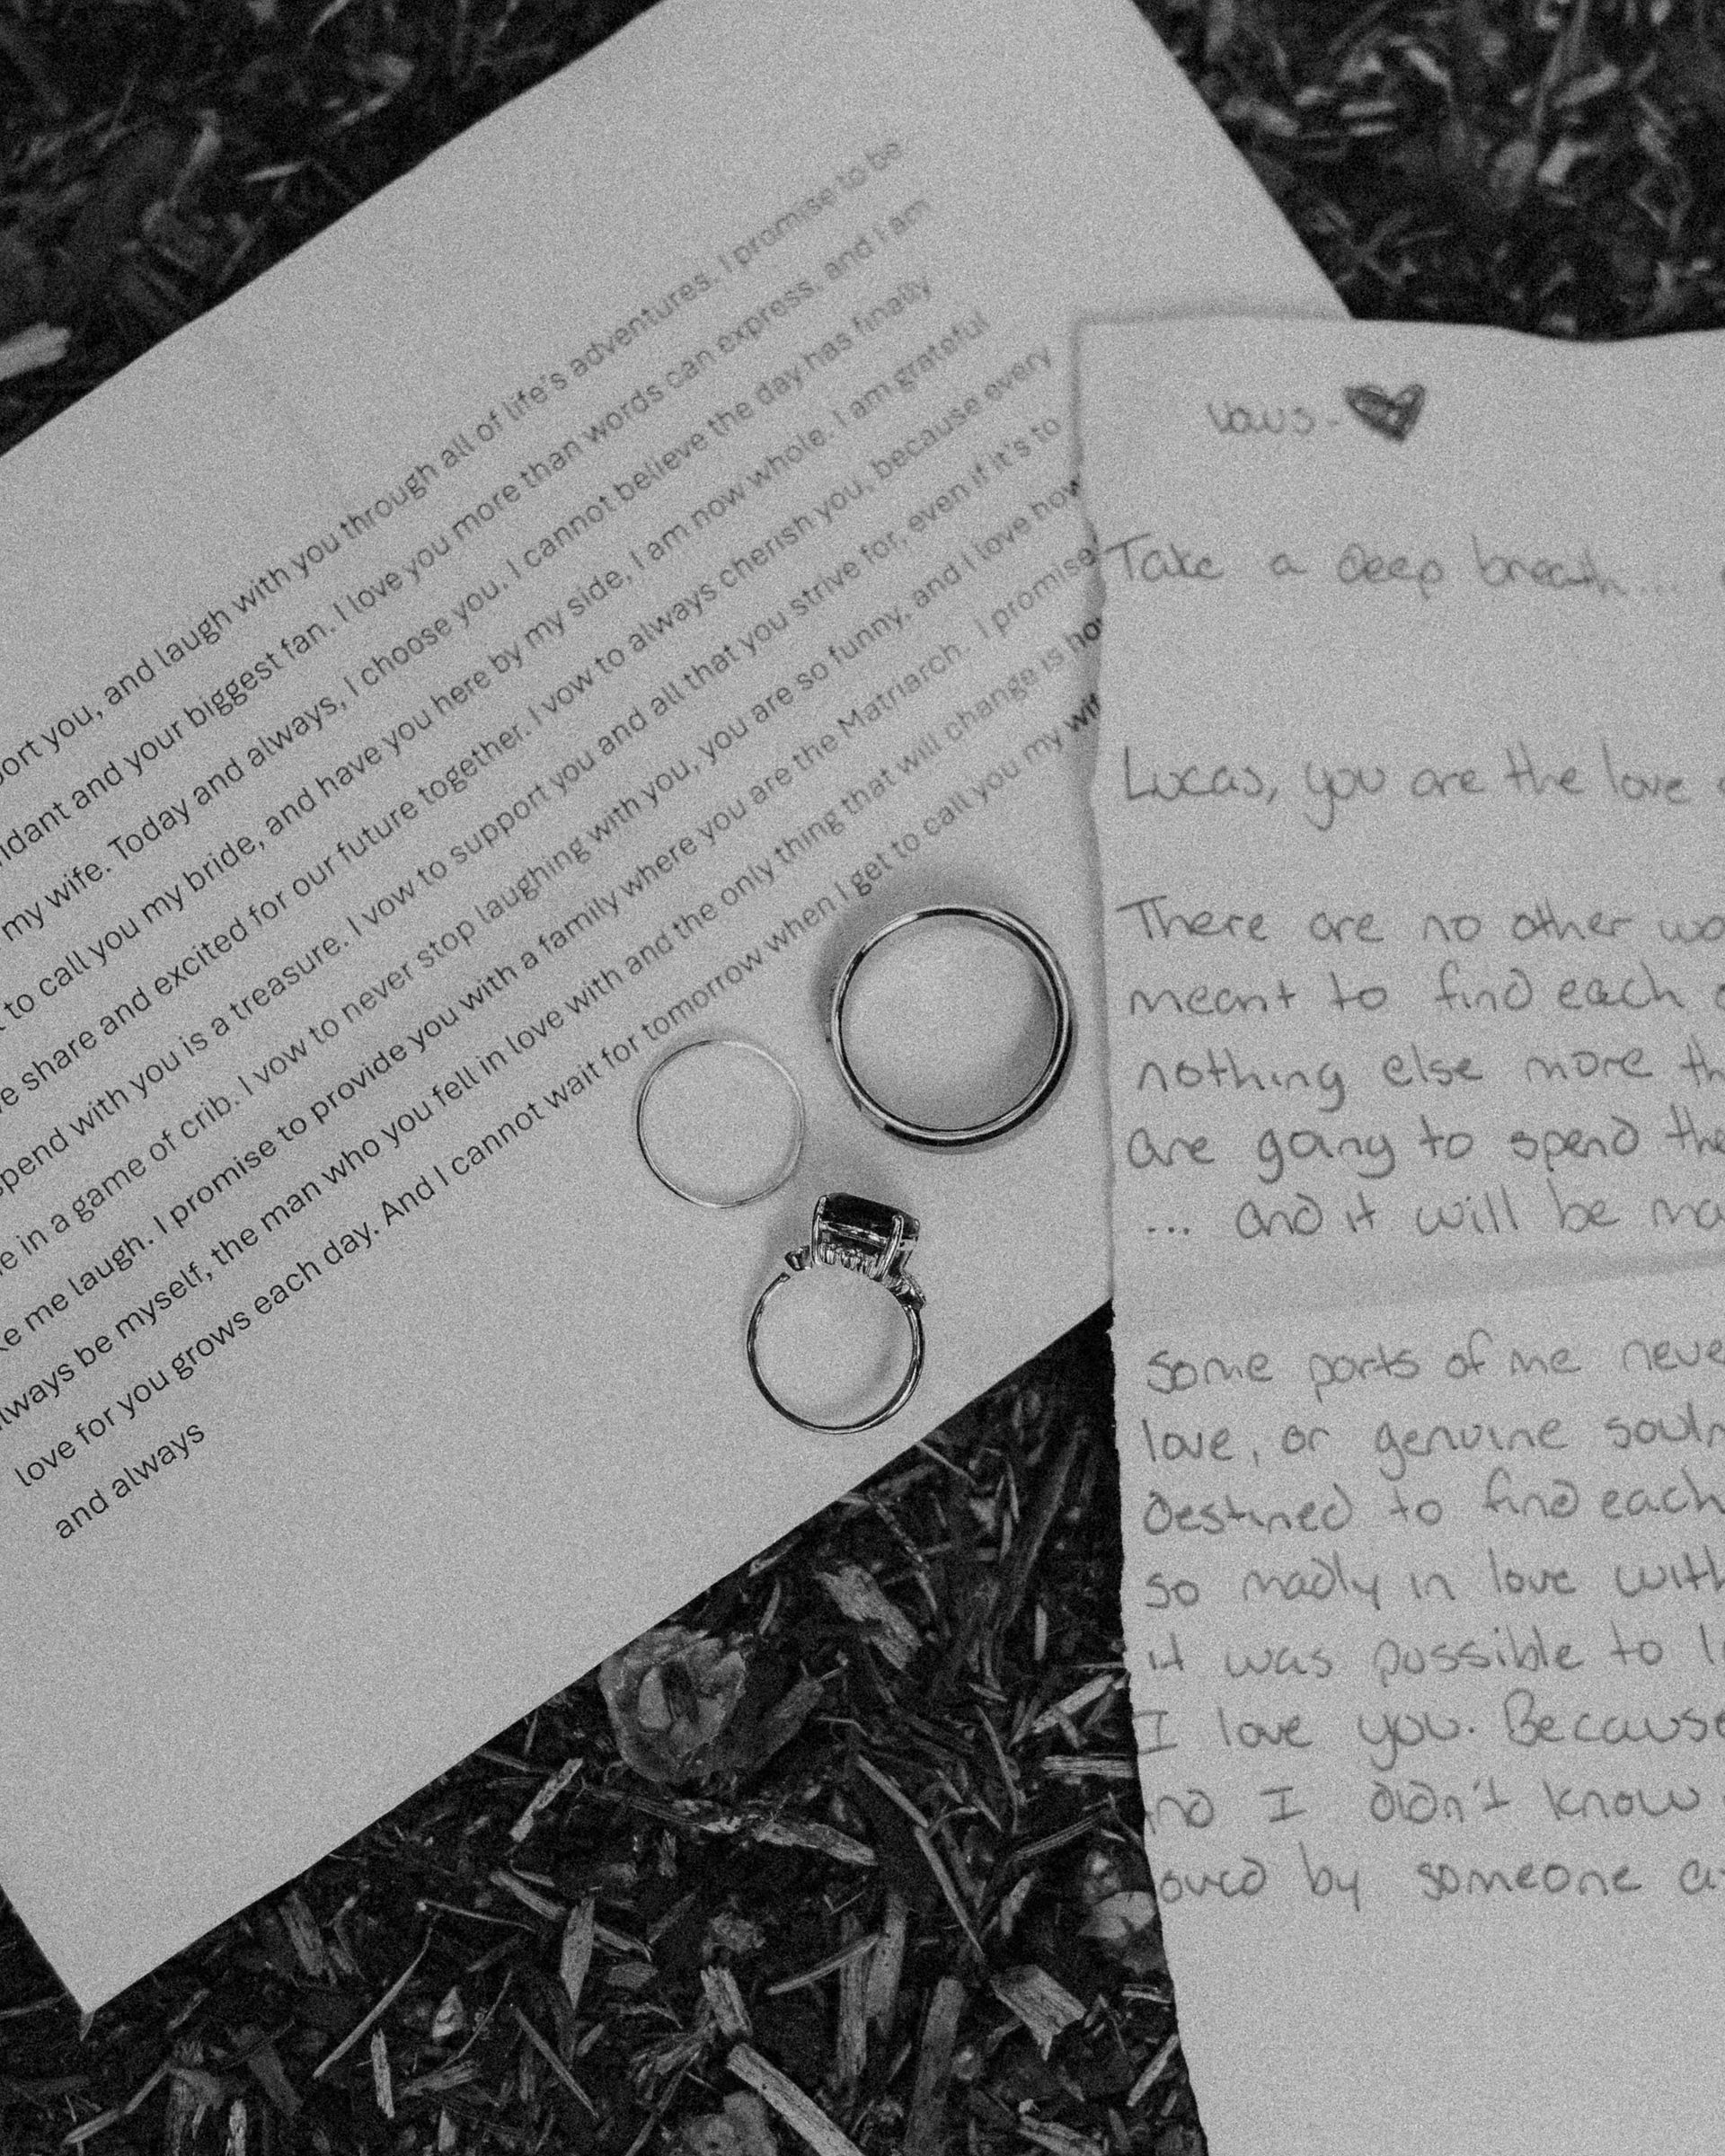 port you, and laugh with you through all of life's adventures. I promise to be
idant and your biggest fan. I love you more than words can express, and I am
my wife. Today and always, I choose you. I cannot believe the day has finally
to call you my bride, and have you here by my side, I am now whole. I am grateful
e share and excited for our future together. I vow to always cherish you, because every
spend with you is a treasure. I vow to support you and all that you strive for, even if it's to
e in a game of crib. I vow to never stop laughing with you, you are so funny, and I love how
ke me laugh. I promise to provide you with a family where you are the Matriarch. I promise
lways be myself, the man who you fell in love with and the only thing that will change is ho
love for you grows each day. And I cannot wait for tomorrow when I get to call you my wif
and always
vows-
Take a deep breath...
Lucas, you are the love
There are no other wo
meant to find each o
nothing else more th
are going to spend the
... and it will be ma
Some parts of me neve
love, or genuine soulm
destined to find each
so madly in love with
it was possible to l
I love you. Because
nd I didn't know
oved by someone a